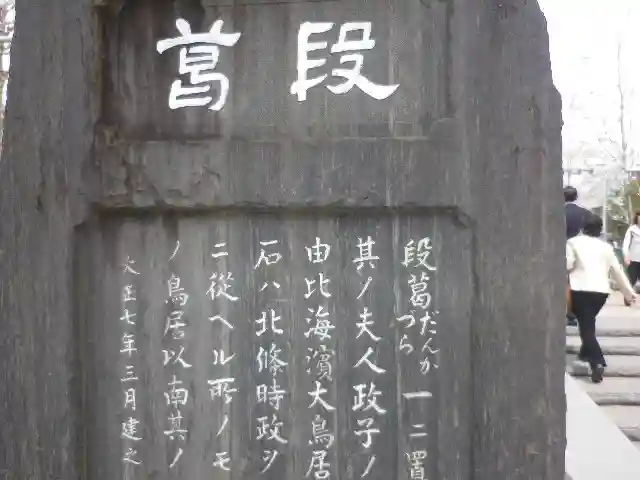 段葛
段葛だんかづら 一ニ置
其ノ夫人政子ノ
由比海濱大鳥居
石ハ北條時政ヲ
ニ從ヘル所ノモ
ノ鳥居以南其ノ
大正七年三月建之